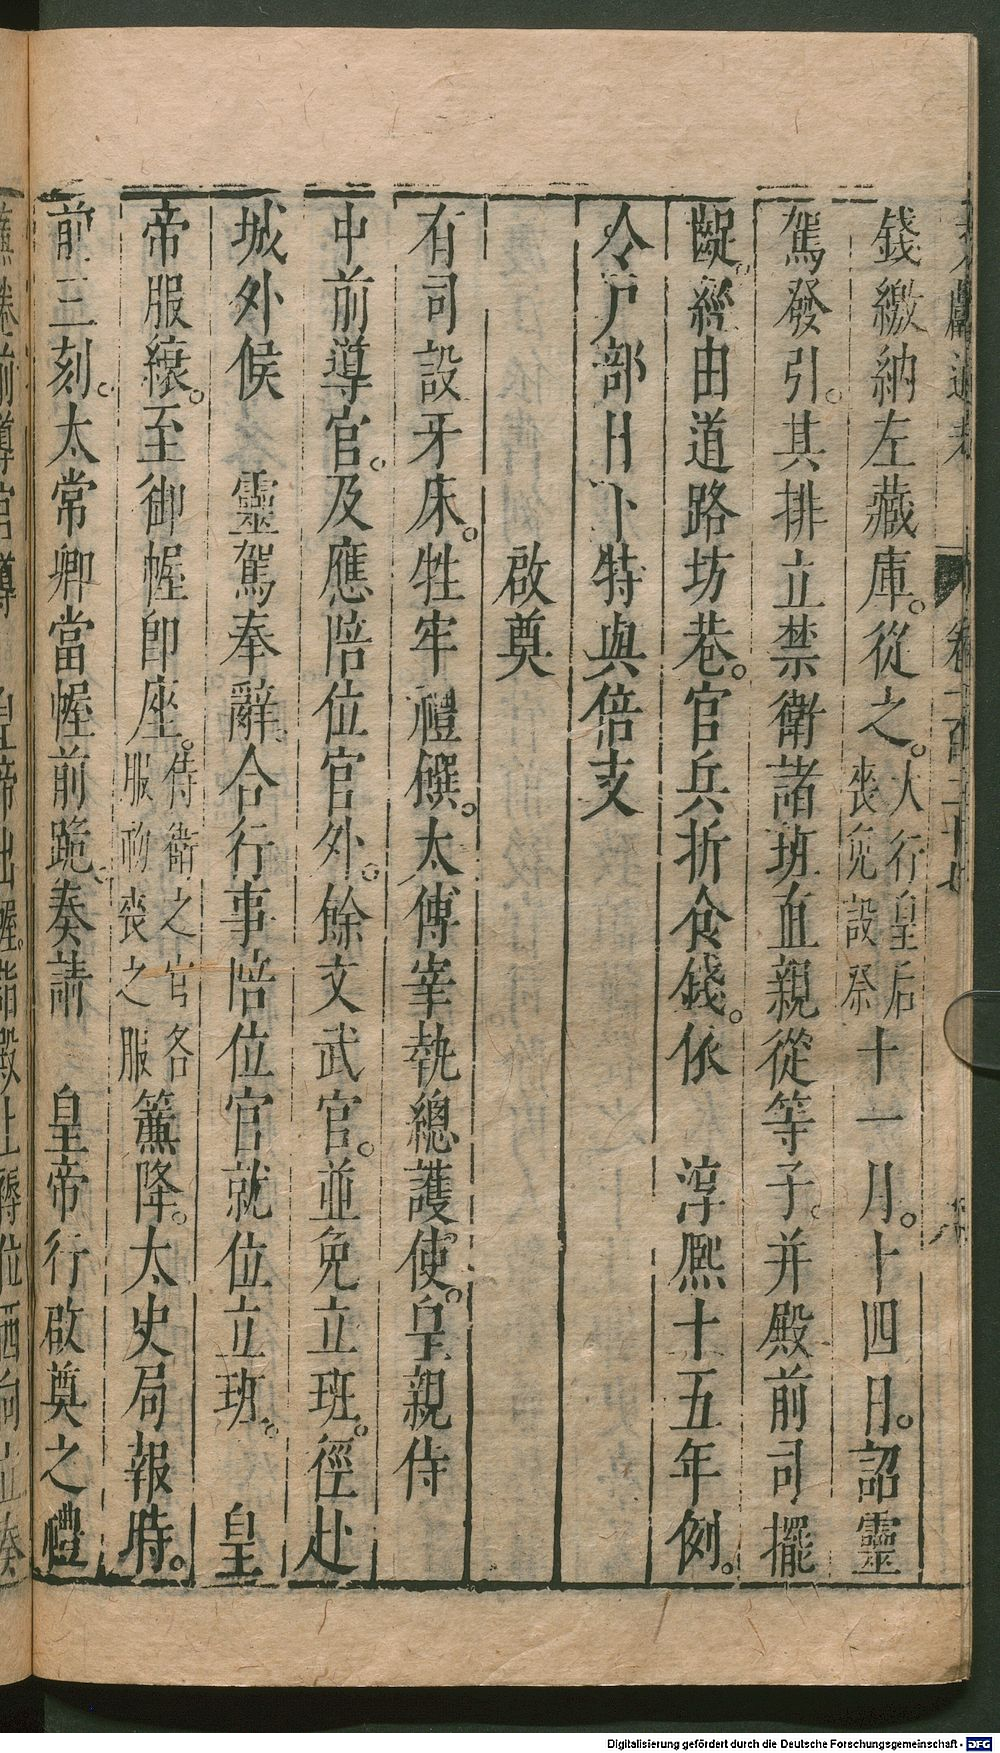 錢繳納左藏庫。從之。大行皇后喪免設祭十一月。十四日。詔靈
駕發引。其排立禁衛諸班直親從等子。并殿前司擺
齪。經由道路坊巷。官兵折食錢。依 淳熙十五年例。
令戶部日下特與倍支
啟奠
有司設牙床。牲牢禮饌。太傅宰執總護使。皇親侍
中前導官。及應陪位官外。餘文武官。並免立班。徑赴
城外候 靈駕奉辭。合行事陪位官就位立班。 皇
帝服縗。至御幄即座。侍衛之官各服初喪之服簾降。太史局報時。
前三刻。太常卿當幄前跪。奏請 皇帝行啟奠之禮
簾捲前導官導 皇帝出幄。詣殿上褥位西向立奏
Digitalisierung gefördert durch die Deutsche Forschungsgemeinschaft - DFG